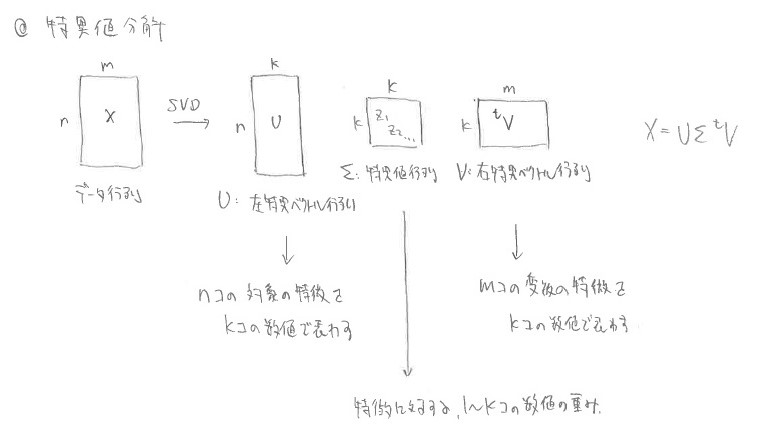 @ 特異値分解
m
n
X
データ行列
SVD
k
n
U
U: 左特異ベクトル行列
k
k
Z1
Z2...
Σ: 特異値行列
m
k
tV
V: 右特異ベクトル行列
X = UΣtV
nコの対象の特徴を
kコの数値で表わす
mコの変数の特徴を
kコの数値で表わす
特徴に対する, 1〜kコの数値の重み.